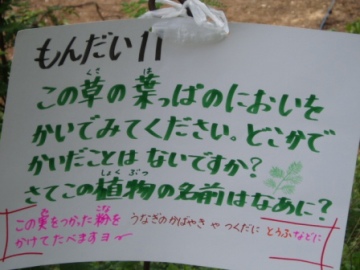 もんだい11
この草の葉っぱのにおいを
かいでみてください。どこかで
かいだことは ないですか?
さてこの植物の名前はなあに?
この実をつかった粉を うなぎのかばやき や つくだに とうふなどに
かけてたべますヨ〜